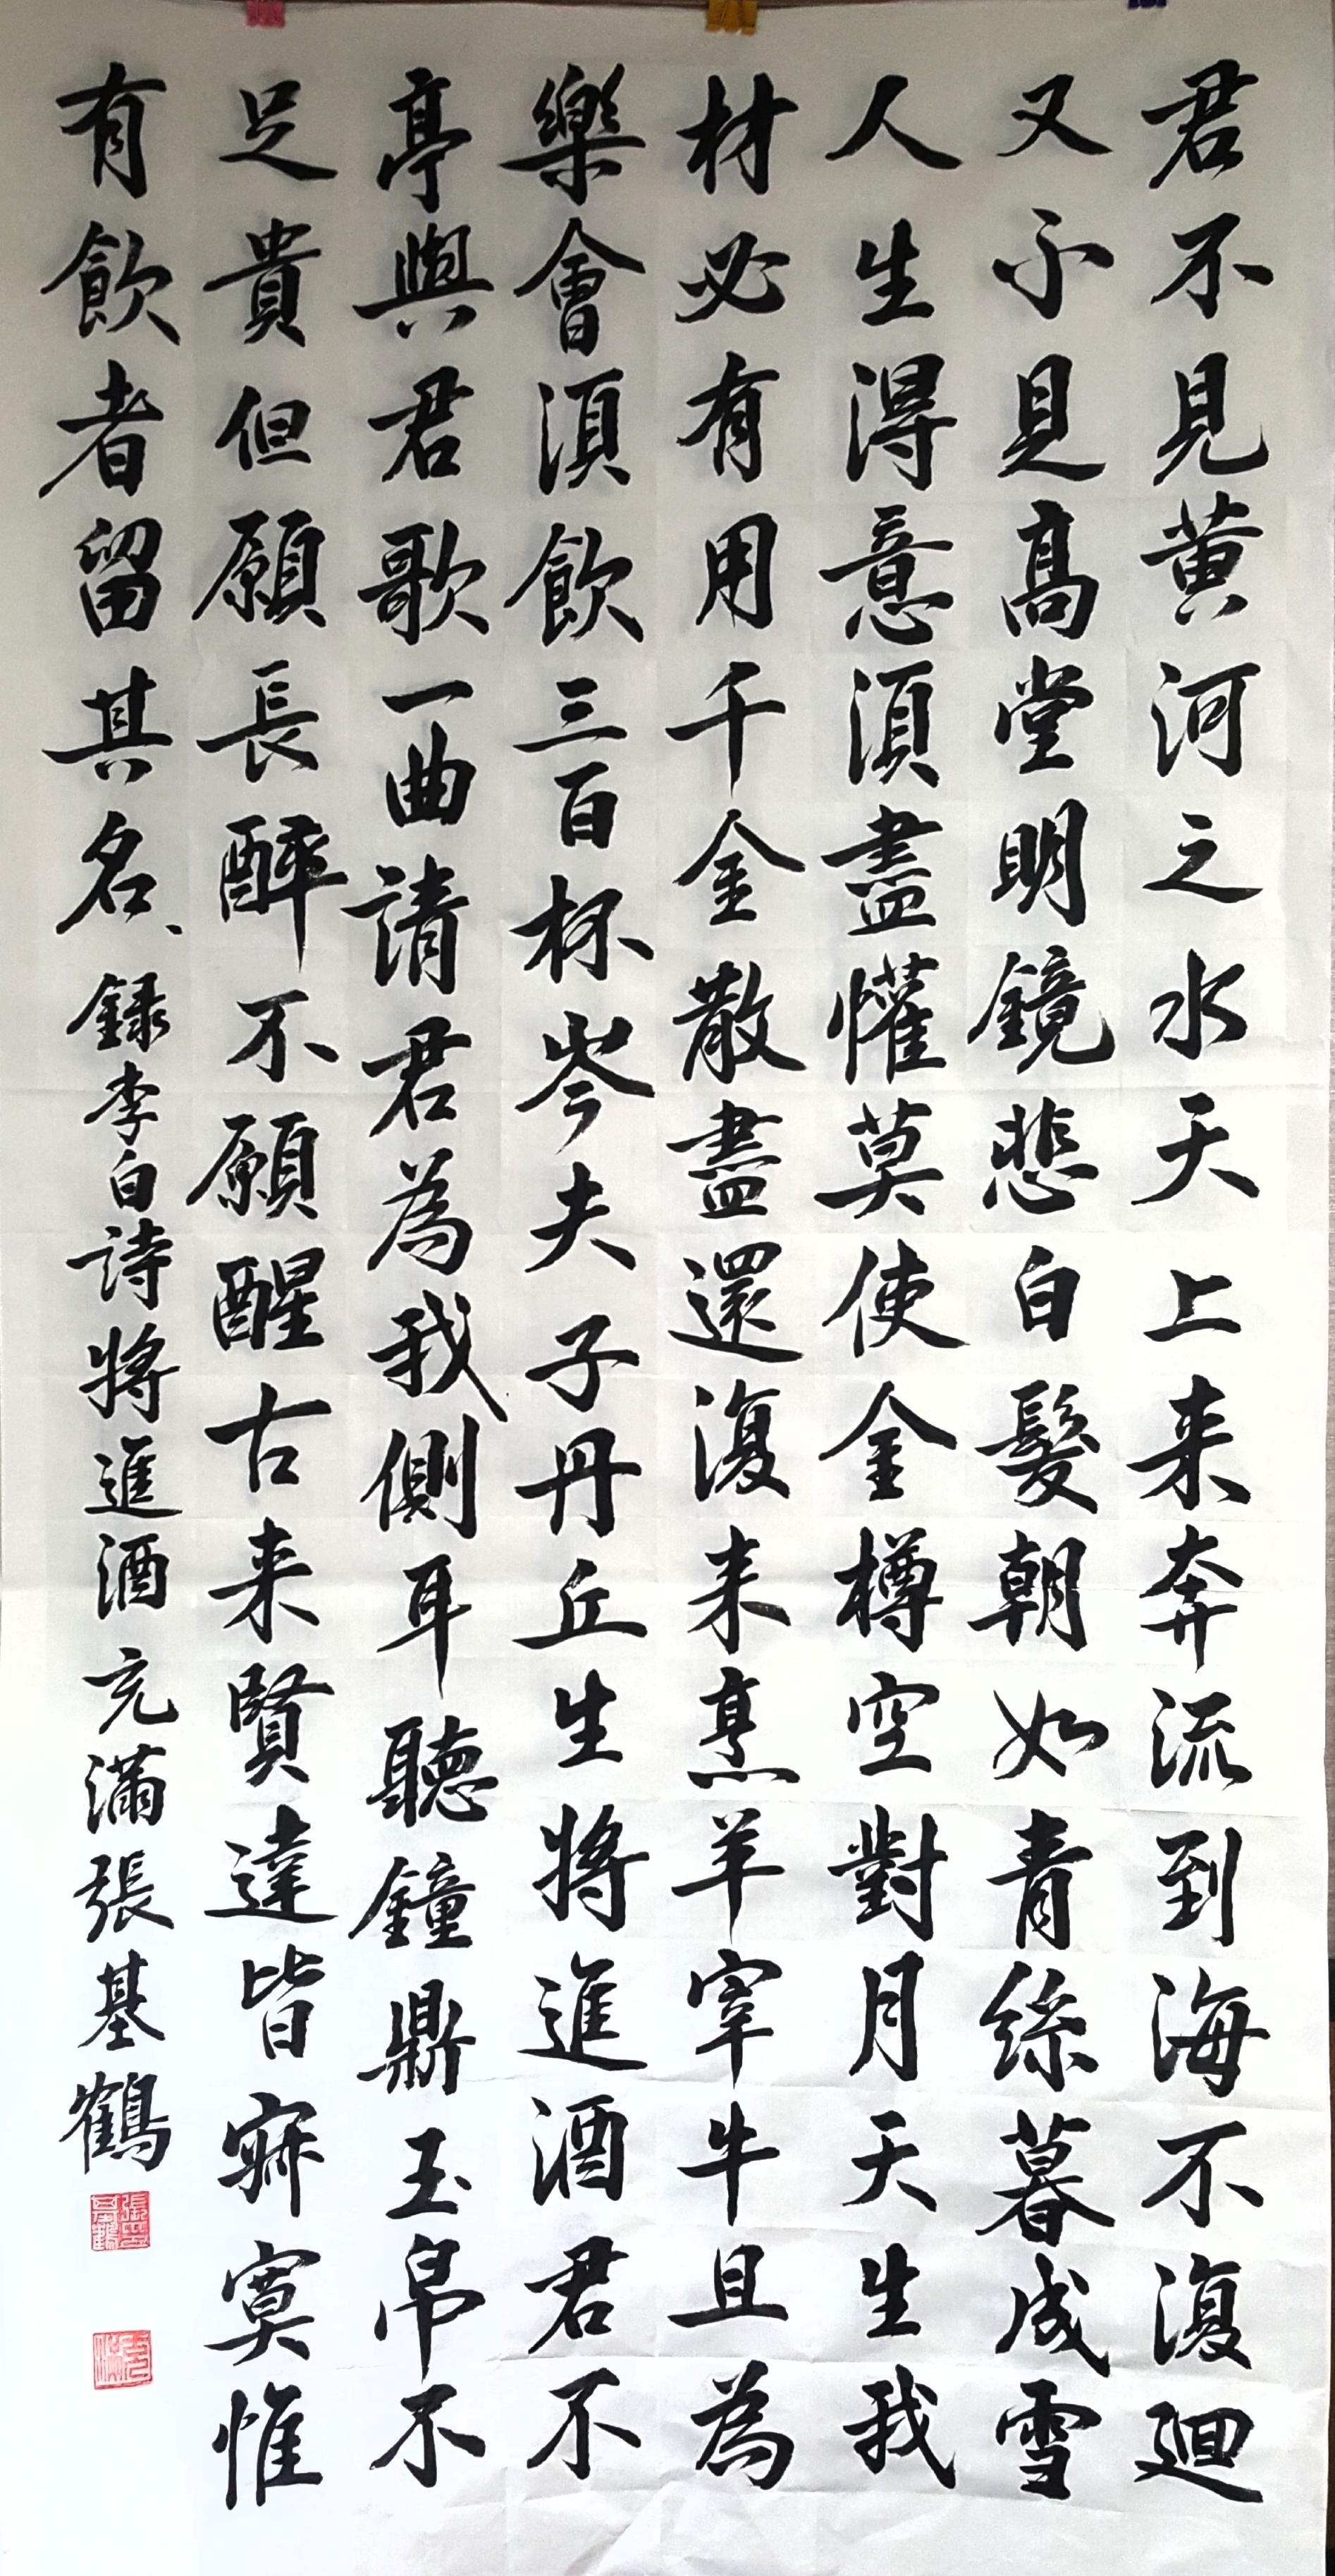 君不見黄河之水天上来奔流到海不復廻
又不見高堂明鏡悲白髮朝如青絲暮成雪
人生得意須盡懽莫使金樽空對月天生我
材必有用千金散盡還復来烹羊宰牛且為
樂會須飲三百杯岑夫子丹丘生將進酒君不
亭與君歌一曲請君為我側耳聽鐘鼎玉帛不
足貴但願長醉不願醒古来賢達皆寂寞惟
有飲者留其名、録李白詩將進酒充滿張基鶴